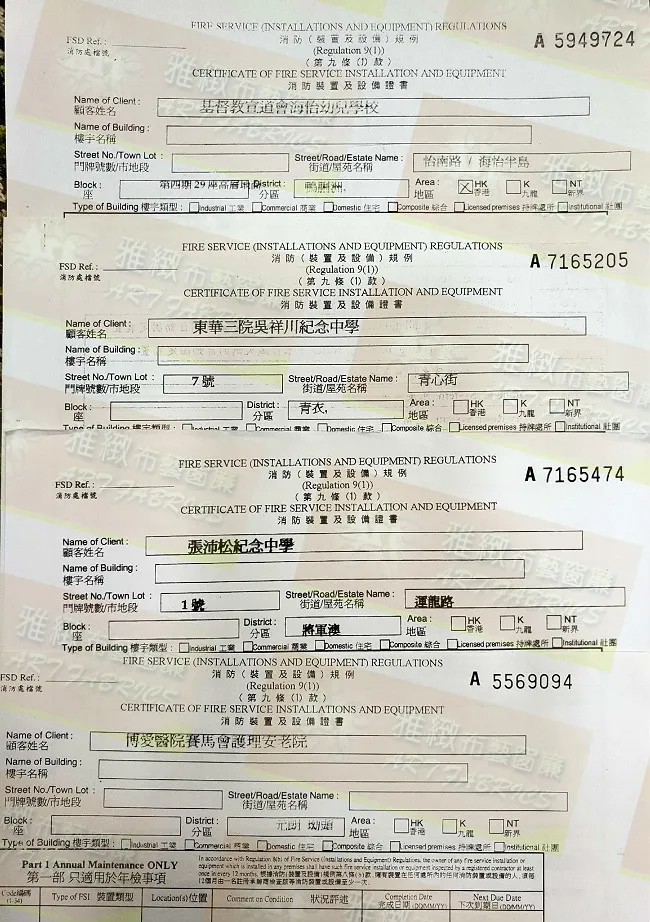 FIRE SERVICE (INSTALLATIONS AND EQUIPMENT) REGULATIONS
消防(裝置及設備)規例
FSD Ref.: A 5949724
消防處檔號 (Regulation 9(1))
(第九條(1)款)
CERTIFICATE OF FIRE SERVICE INSTALLATION AND EQUIPMENT
消防裝置及設備證書
Name of Client : 基督教宣道會海怡幼兒學校
顧客姓名
Name of Building :
樓宇名稱
Street No./Town Lot : Street/Road/Estate Name : 怡南路 / 海怡半島
門牌號數/市地段 街道/屋苑名稱
Block : 第四期29座高層地 District : 鴨脷洲, Area : HK K NT
座 分區 地區 香港 九龍 新界
Type of Building 樓宇類型: Industrial 工業 Commercial 商業 Domestic 住宅 Composite 綜合 Licensed premises 持牌處所 Institutional 社團
FIRE SERVICE (INSTALLATIONS AND EQUIPMENT) REGULATIONS
消防(裝置及設備)規例
FSD Ref.: A 7165205
消防處檔號 (Regulation 9(1))
(第九條(1)款)
CERTIFICATE OF FIRE SERVICE INSTALLATION AND EQUIPMENT
消防裝置及設備證書
Name of Client : 東華三院吳祥川紀念中學
顧客姓名
Name of Building :
樓宇名稱
Street No./Town Lot : 7號 Street/Road/Estate Name : 青心街
門牌號數/市地段 街道/屋苑名稱
Block : District : 青衣, Area : HK K NT
座 分區 地區 香港 九龍 新界
Type of Building 樓宇類型: Industrial 工業 Commercial 商業 Domestic 住宅 Composite 綜合 Licensed premises 持牌處所 Institutional 社團
FIRE SERVICE (INSTALLATIONS AND EQUIPMENT) REGULATIONS
消防(裝置及設備)規例
FSD Ref.: A 7165474
消防處檔號 (Regulation 9(1))
(第九條(1)款)
CERTIFICATE OF FIRE SERVICE INSTALLATION AND EQUIPMENT
消防裝置及設備證書
Name of Client : 張沛松紀念中學
顧客姓名
Name of Building :
樓宇名稱
Street No./Town Lot : 1號 Street/Road/Estate Name : 運龍路
門牌號數/市地段 街道/屋苑名稱
Block : District : 將軍澳 Area : HK K NT
座 分區 地區 香港 九龍 新界
Type of Building 樓宇類型: Industrial 工業 Commercial 商業 Domestic 住宅 Composite 綜合 Licensed premises 持牌處所 Institutional 社團
FIRE SERVICE (INSTALLATIONS AND EQUIPMENT) REGULATIONS
消防(裝置及設備)規例
FSD Ref.: A 5569094
消防處檔號 (Regulation 9(1))
(第九條(1)款)
CERTIFICATE OF FIRE SERVICE INSTALLATION AND EQUIPMENT
消防裝置及設備證書
Name of Client : 博愛醫院賽馬會護理安老院
顧客姓名
Name of Building :
樓宇名稱
Street No./Town Lot : Street/Road/Estate Name :
門牌號數/市地段 街道/屋苑名稱
Block : District : 元朗 Area : HK K NT
座 分區 地區 香港 九龍 新界
Type of Building 樓宇類型: Industrial 工業 Commercial 商業 Domestic 住宅 Composite 綜合 Licensed premises 持牌處所 Institutional 社團
Part 1 Annual Maintenance ONLY
第一部 只適用於年檢事項
In accordance with Regulation 8(b) of Fire Service (Installations and Equipment) Regulations, the owner of any fire service installation or
equipment which is installed in any premises shall have such fire service installation or equipment inspected by a registered contractor at least
once in every 12 months. 根據消防(裝置及設備)規例第八條(b)款, 擁有裝置在任何處所內的任何消防裝置或設備的人, 須每
12個月由一名註冊承辦商檢查該等消防裝置或設備至少一次.
Code編碼 (1-34) Type of FSI 裝置類型 Location(s)位置 Comment on Condition 狀況評述 Completion Date 完成日期(DD/MM/YY) Next Due Date 下次到期日(DD/MM/YY)